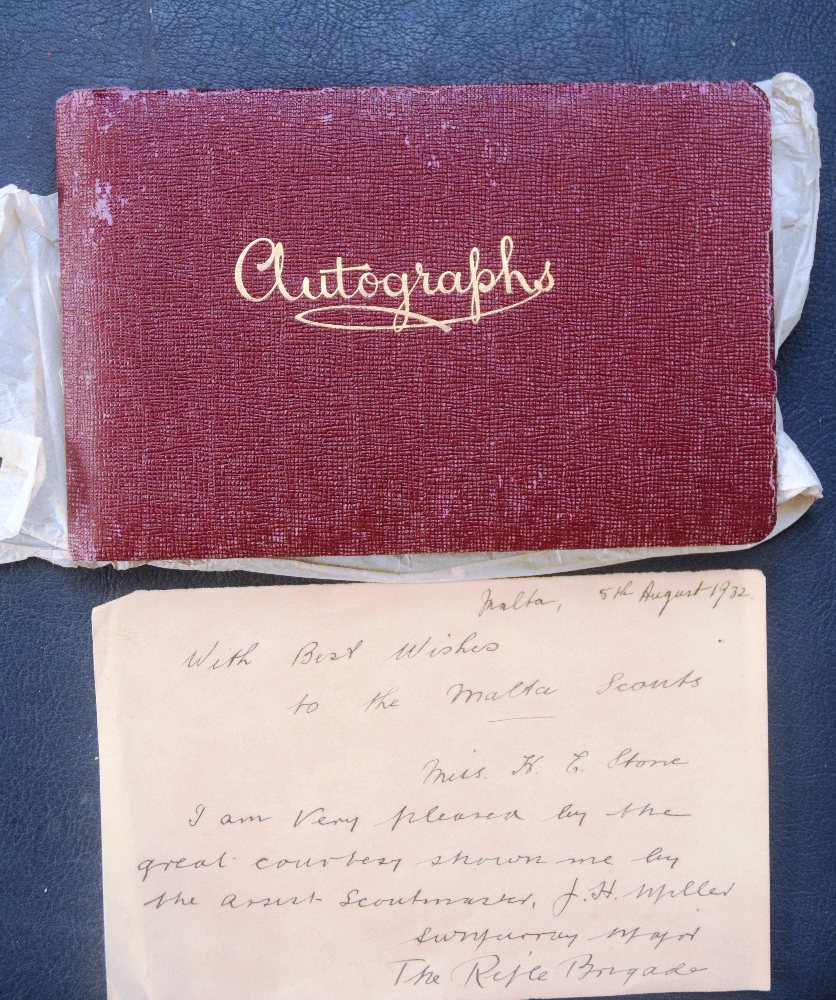 Autographs
Malta, 5th August 1932.
With Best Wishes
to the Malta Scouts
Miss. H. E. Stone
I am Very pleased by the
great courtesy shown me by
the assist Scoutmaster, J. H. Miller
Major
The Rifle Brigade